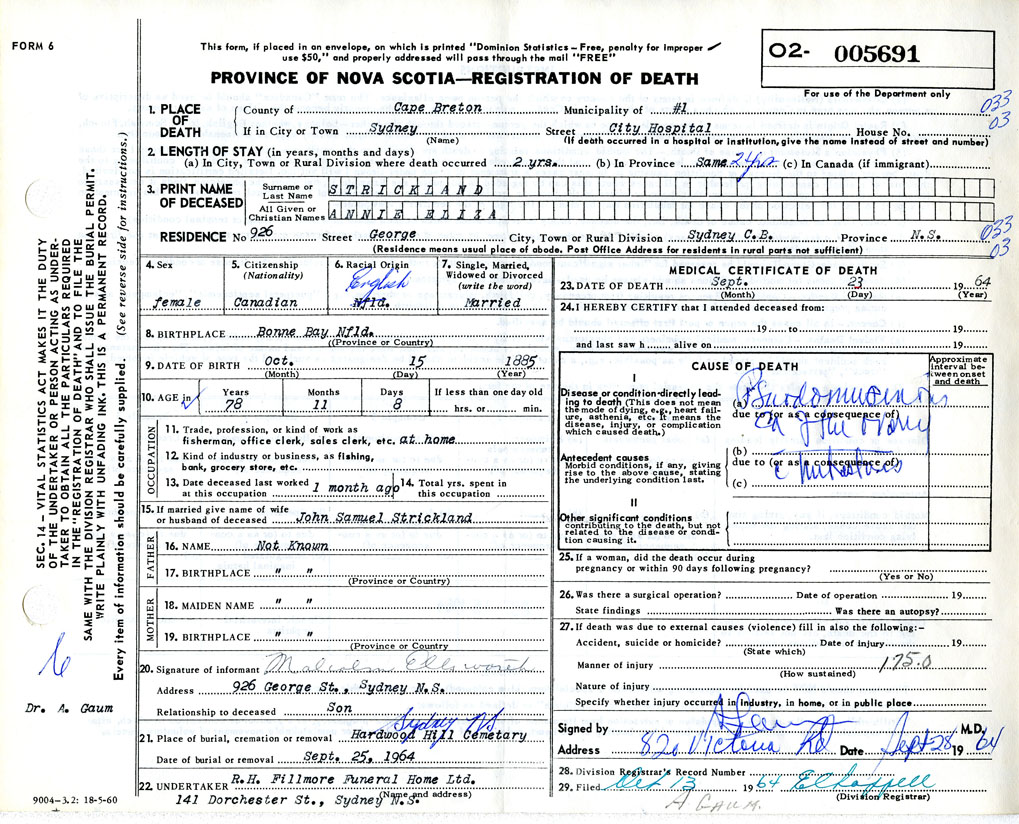 FORM 6
This form, if placed in an envelope, on which is printed "Dominion Statistics – Free, penalty for improper
use $50," and properly addressed will pass through the mail "FREE"
PROVINCE OF NOVA SCOTIA—REGISTRATION OF DEATH
O2- 005691
For use of the Department only
1. PLACE OF DEATH
County of Cape Breton Municipality of #1 033
If in City or Town Sydney Street City Hospital House No. 03
(Name) (If death occurred in a hospital or institution, give the name instead of street and number)
2. LENGTH OF STAY (in years, months and days)
(a) In City, Town or Rural Division where death occurred 2 yrs. (b) In Province Same 24yrs (c) In Canada (if immigrant)
3. PRINT NAME OF DECEASED
Surname or Last Name STRICKLAND
All Given or Christian Names ANNIE ELIZA
RESIDENCE No 926 Street George City, Town or Rural Division Sydney C.B. Province N.S. 033 03
(Residence means usual place of abode. Post Office Address for residents in rural parts not sufficient)
4. Sex
female
5. Citizenship
(Nationality)
Canadian
6. Racial Origin
English
Nfld.
7. Single, Married, Widowed or Divorced
(write the word)
Married
8. BIRTHPLACE Bonne Bay Nfld.
(Province or Country)
9. DATE OF BIRTH Oct. 15 1885
(Month) (Day) (Year)
10. AGE in
Years Months Days If less than one day old
78 11 8 hrs. or min.
OCCUPATION
11. Trade, profession, or kind of work as
fisherman, office clerk, sales clerk, etc. at home
12. Kind of industry or business, as fishing,
bank, grocery store, etc.
13. Date deceased last worked at this occupation 1 month ago
14. Total yrs. spent in this occupation
15. If married give name of wife
or husband of deceased John Samuel Strickland
FATHER
16. NAME Not Known
17. BIRTHPLACE " "
(Province or Country)
MOTHER
18. MAIDEN NAME " "
19. BIRTHPLACE " "
(Province or Country)
20. Signature of informant Malcolm Ellsworth
Address 926 George St., Sydney N.S.
Relationship to deceased Son
Sydney NS
21. Place of burial, cremation or removal Hardwood Hill Cemetary
Date of burial or removal Sept. 25, 1964
22. UNDERTAKER R.H. Fillmore Funeral Home Ltd.
(Name and address)
141 Dorchester St., Sydney N.S.
MEDICAL CERTIFICATE OF DEATH
23. DATE OF DEATH Sept. 23 19 64
(Month) (Day) (Year)
24. I HEREBY CERTIFY that I attended deceased from:
19 to 19
and last saw h alive on 19
CAUSE OF DEATH
Approximate interval between onset and death
I
Disease or condition directly leading to death (This does not mean the mode of dying, e.g., heart failure, asthenia, etc. It means the disease, injury, or complication which caused death.)
(a)
due to (or as a consequence of)
Ca of the ovary
Antecedent causes
Morbid conditions, if any, giving rise to the above cause, stating the underlying condition last.
(b)
due to (or as a consequence of)
(c)
II
Other significant conditions
contributing to the death, but not related to the disease or condition causing it.
25. If a woman, did the death occur during
pregnancy or within 90 days following pregnancy?
(Yes or No)
26. Was there a surgical operation? Date of operation 19
State findings Was there an autopsy?
27. If death was due to external causes (violence) fill in also the following:–
Accident, suicide or homicide? Date of injury 19
(State which)
Manner of injury 175.0
(How sustained)
Nature of injury
Specify whether injury occurred in industry, in home, or in public place
Signed by A Gaum M.D.
Address 820 Victoria Rd Date Sept 28 19 64
28. Division Registrar's Record Number
29. Filed Oct 13 1964
(Division Registrar)
A GAUM.
SEC. 14 – VITAL STATISTICS ACT MAKES IT THE DUTY
OF THE UNDERTAKER OR PERSON ACTING AS UNDER-
TAKER TO OBTAIN ALL THE PARTICULARS REQUIRED
IN THE "REGISTRATION OF DEATH" AND TO FILE THE
SAME WITH THE DIVISION REGISTRAR WHO SHALL ISSUE THE BURIAL PERMIT.
WRITE PLAINLY WITH UNFADING INK. THIS IS A PERMANENT RECORD.
Every item of information should be carefully supplied. (See reverse side for instructions.)
Dr. A. Gaum
9004-3.2: 18-5-60